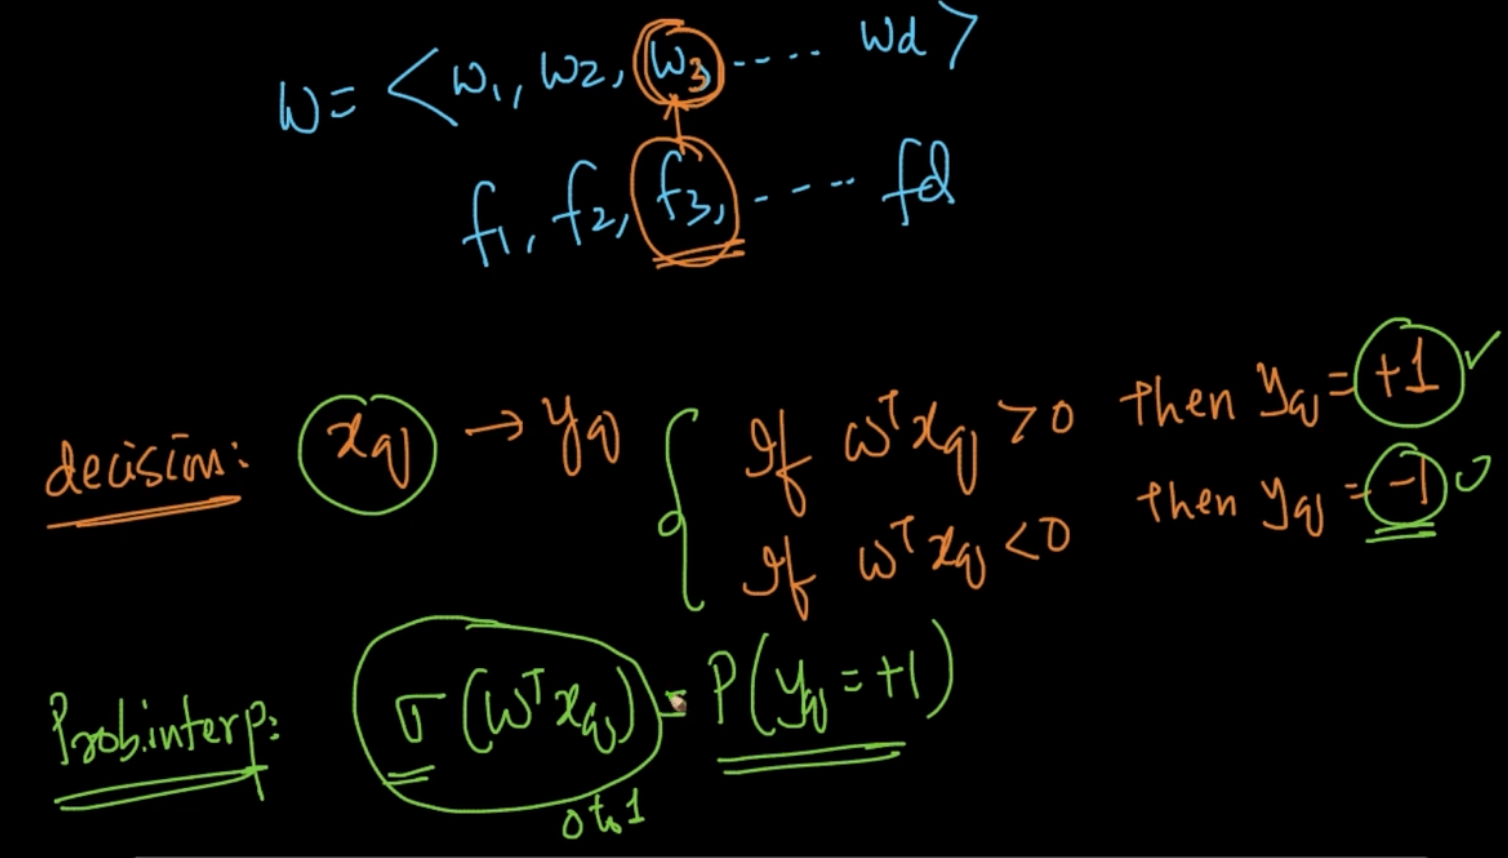 W = < w1, w2, w3, ---.... wd >
f1, f2, f3, ----.. fd
decision: xq → yq { If wᵀxq > 0 then yq = +1 ✓
If wᵀxq < 0 then yq = -1
Prob.interp: σ(wᵀxq) = P(yq = +1)
0 to 1